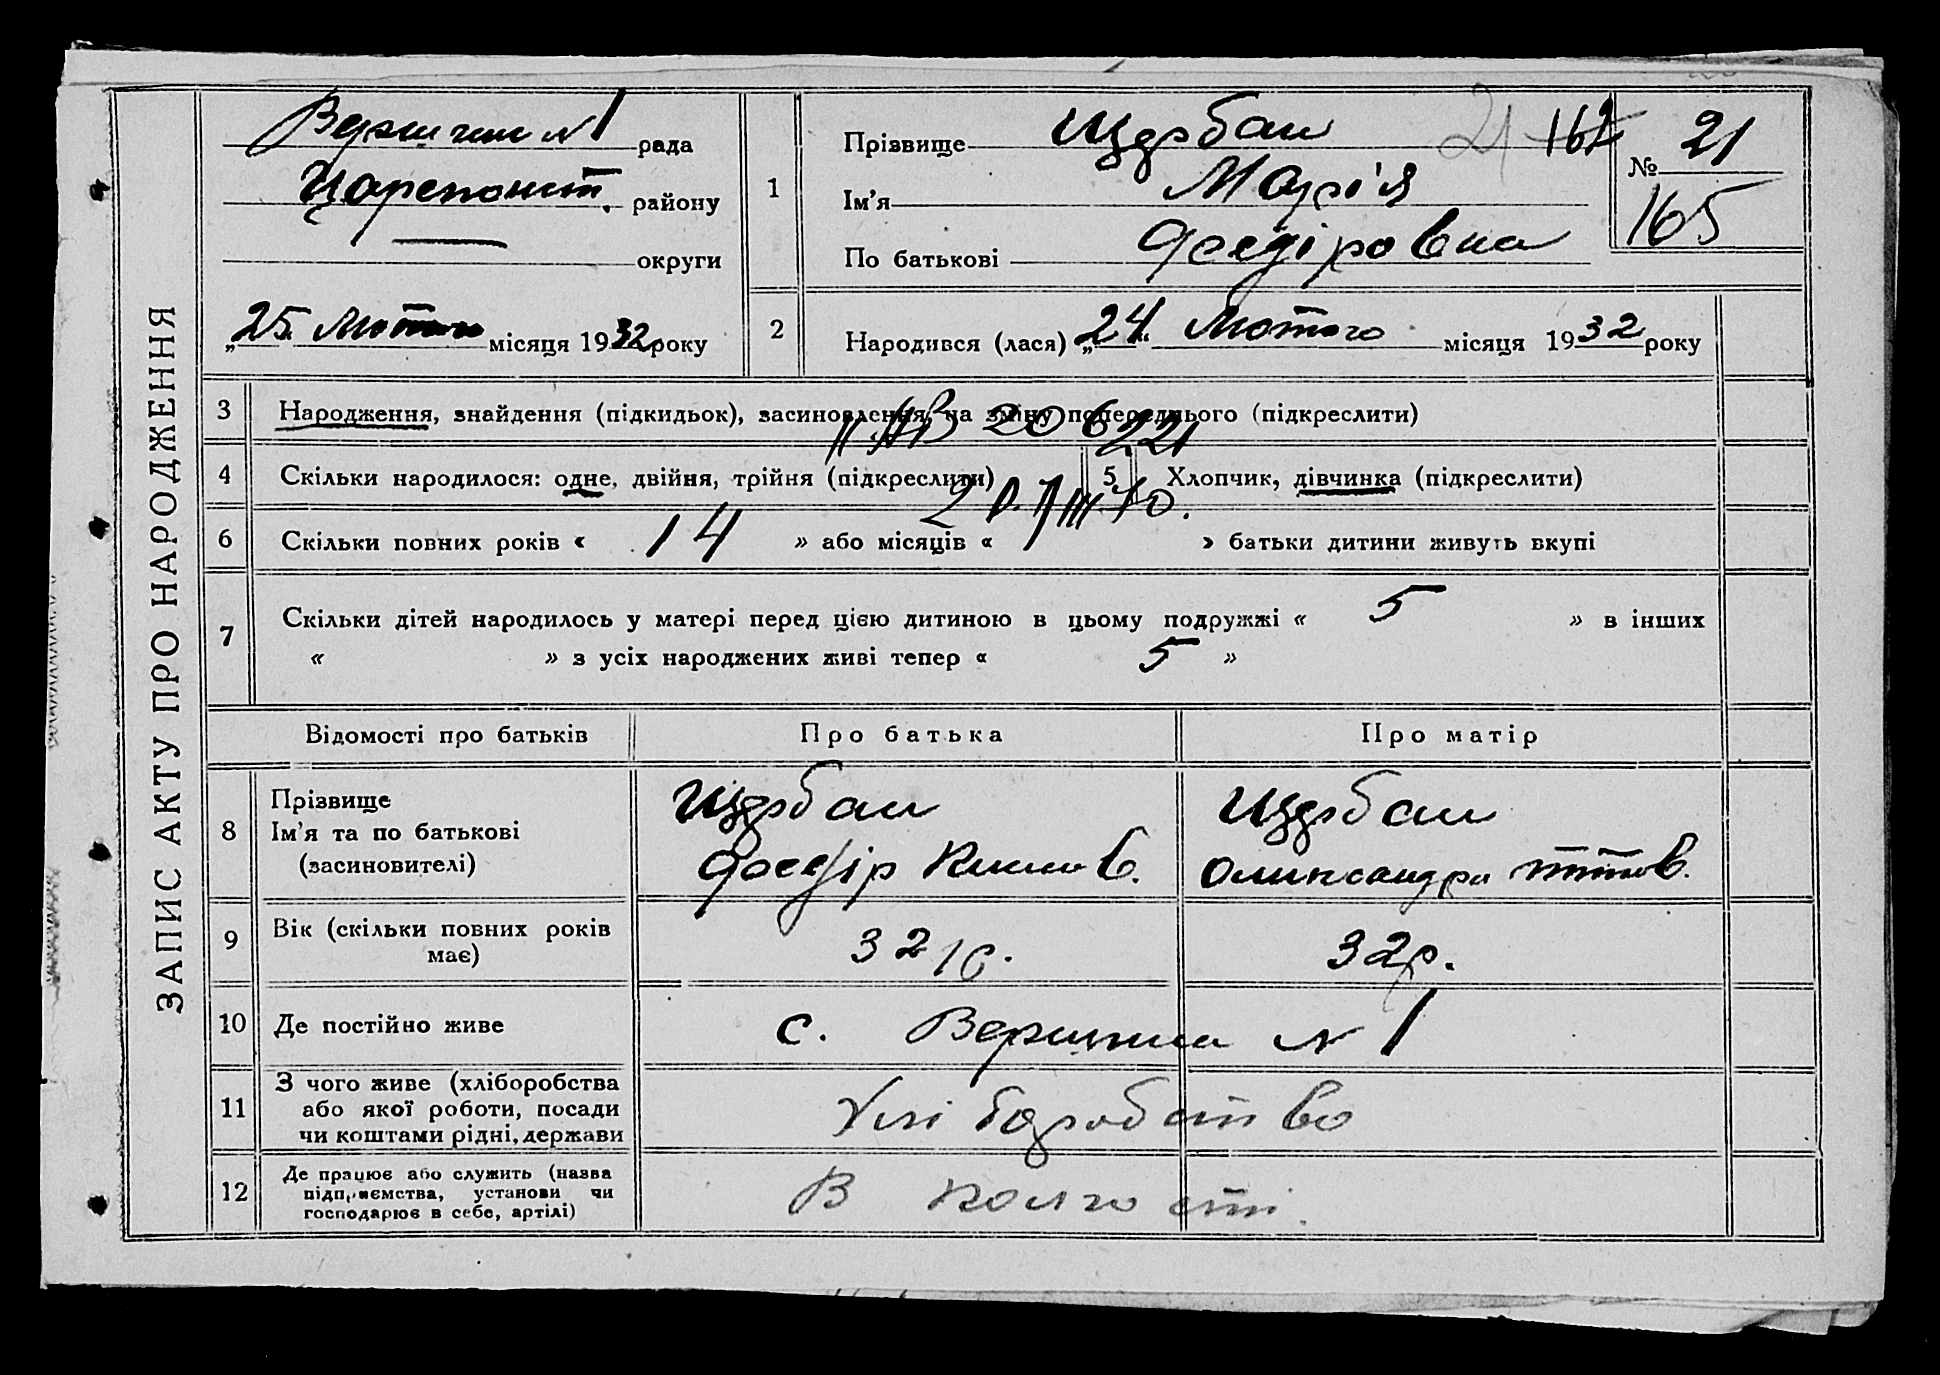 ЗАПИС АКТУ ПРО НАРОДЖЕННЯ
Вершина № 1 рада
Царекопст. району
— округи
„25“ Лютого місяця 1932 року
1
Прізвище Щербан
Ім’я Марія
По батькові Федіровна
21 162
№ 21
165
2
Народився (лася) „24“ Лютого місяця 1932 року
3 Народження, знайдення (підкидьок), засиновлення, на зміну попереднього (підкреслити)
4 Скільки народилося: одне, двійня, трійня (підкреслити)
5 Хлопчик, дівчинка (підкреслити)
6 Скільки повних років « 14 » або місяців « » батьки дитини живуть вкупі
7 Скільки дітей народилось у матері перед цією дитиною в цьому подружжі « 5 » в інших
« » з усіх народжених живі тепер « 5 »
Відомості про батьків Про батька Про матір
8 Прізвище
Ім’я та по батькові
(засиновителі)
Щербан
Федір
Щербан
Оликсандра
9 Вік (скільки повних років
має)
32 р.
32 р.
10 Де постійно живе
с. Вершина № 1
11 З чого живе (хліборобства
або якої роботи, посади
чи коштами рідні, держави
Хліборобство
12 Де працює або служить (назва
підприємства, установи чи
господарює в себе, артілі)
В колгоспі.